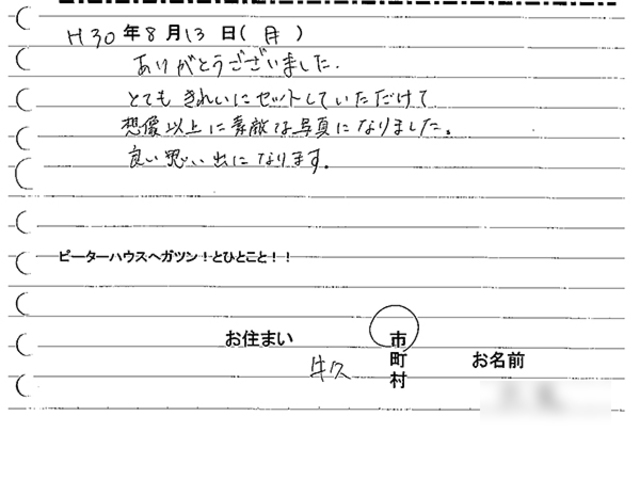 H30年8月13日(月)
ありがとうございました.
とても きれいにセットしていただけて
想像以上に素敵な写真になりました。
良い思い出になります。
ピーターハウスへガツン!とひとこと!!
お住まい
牛久
市
町
村
お名前